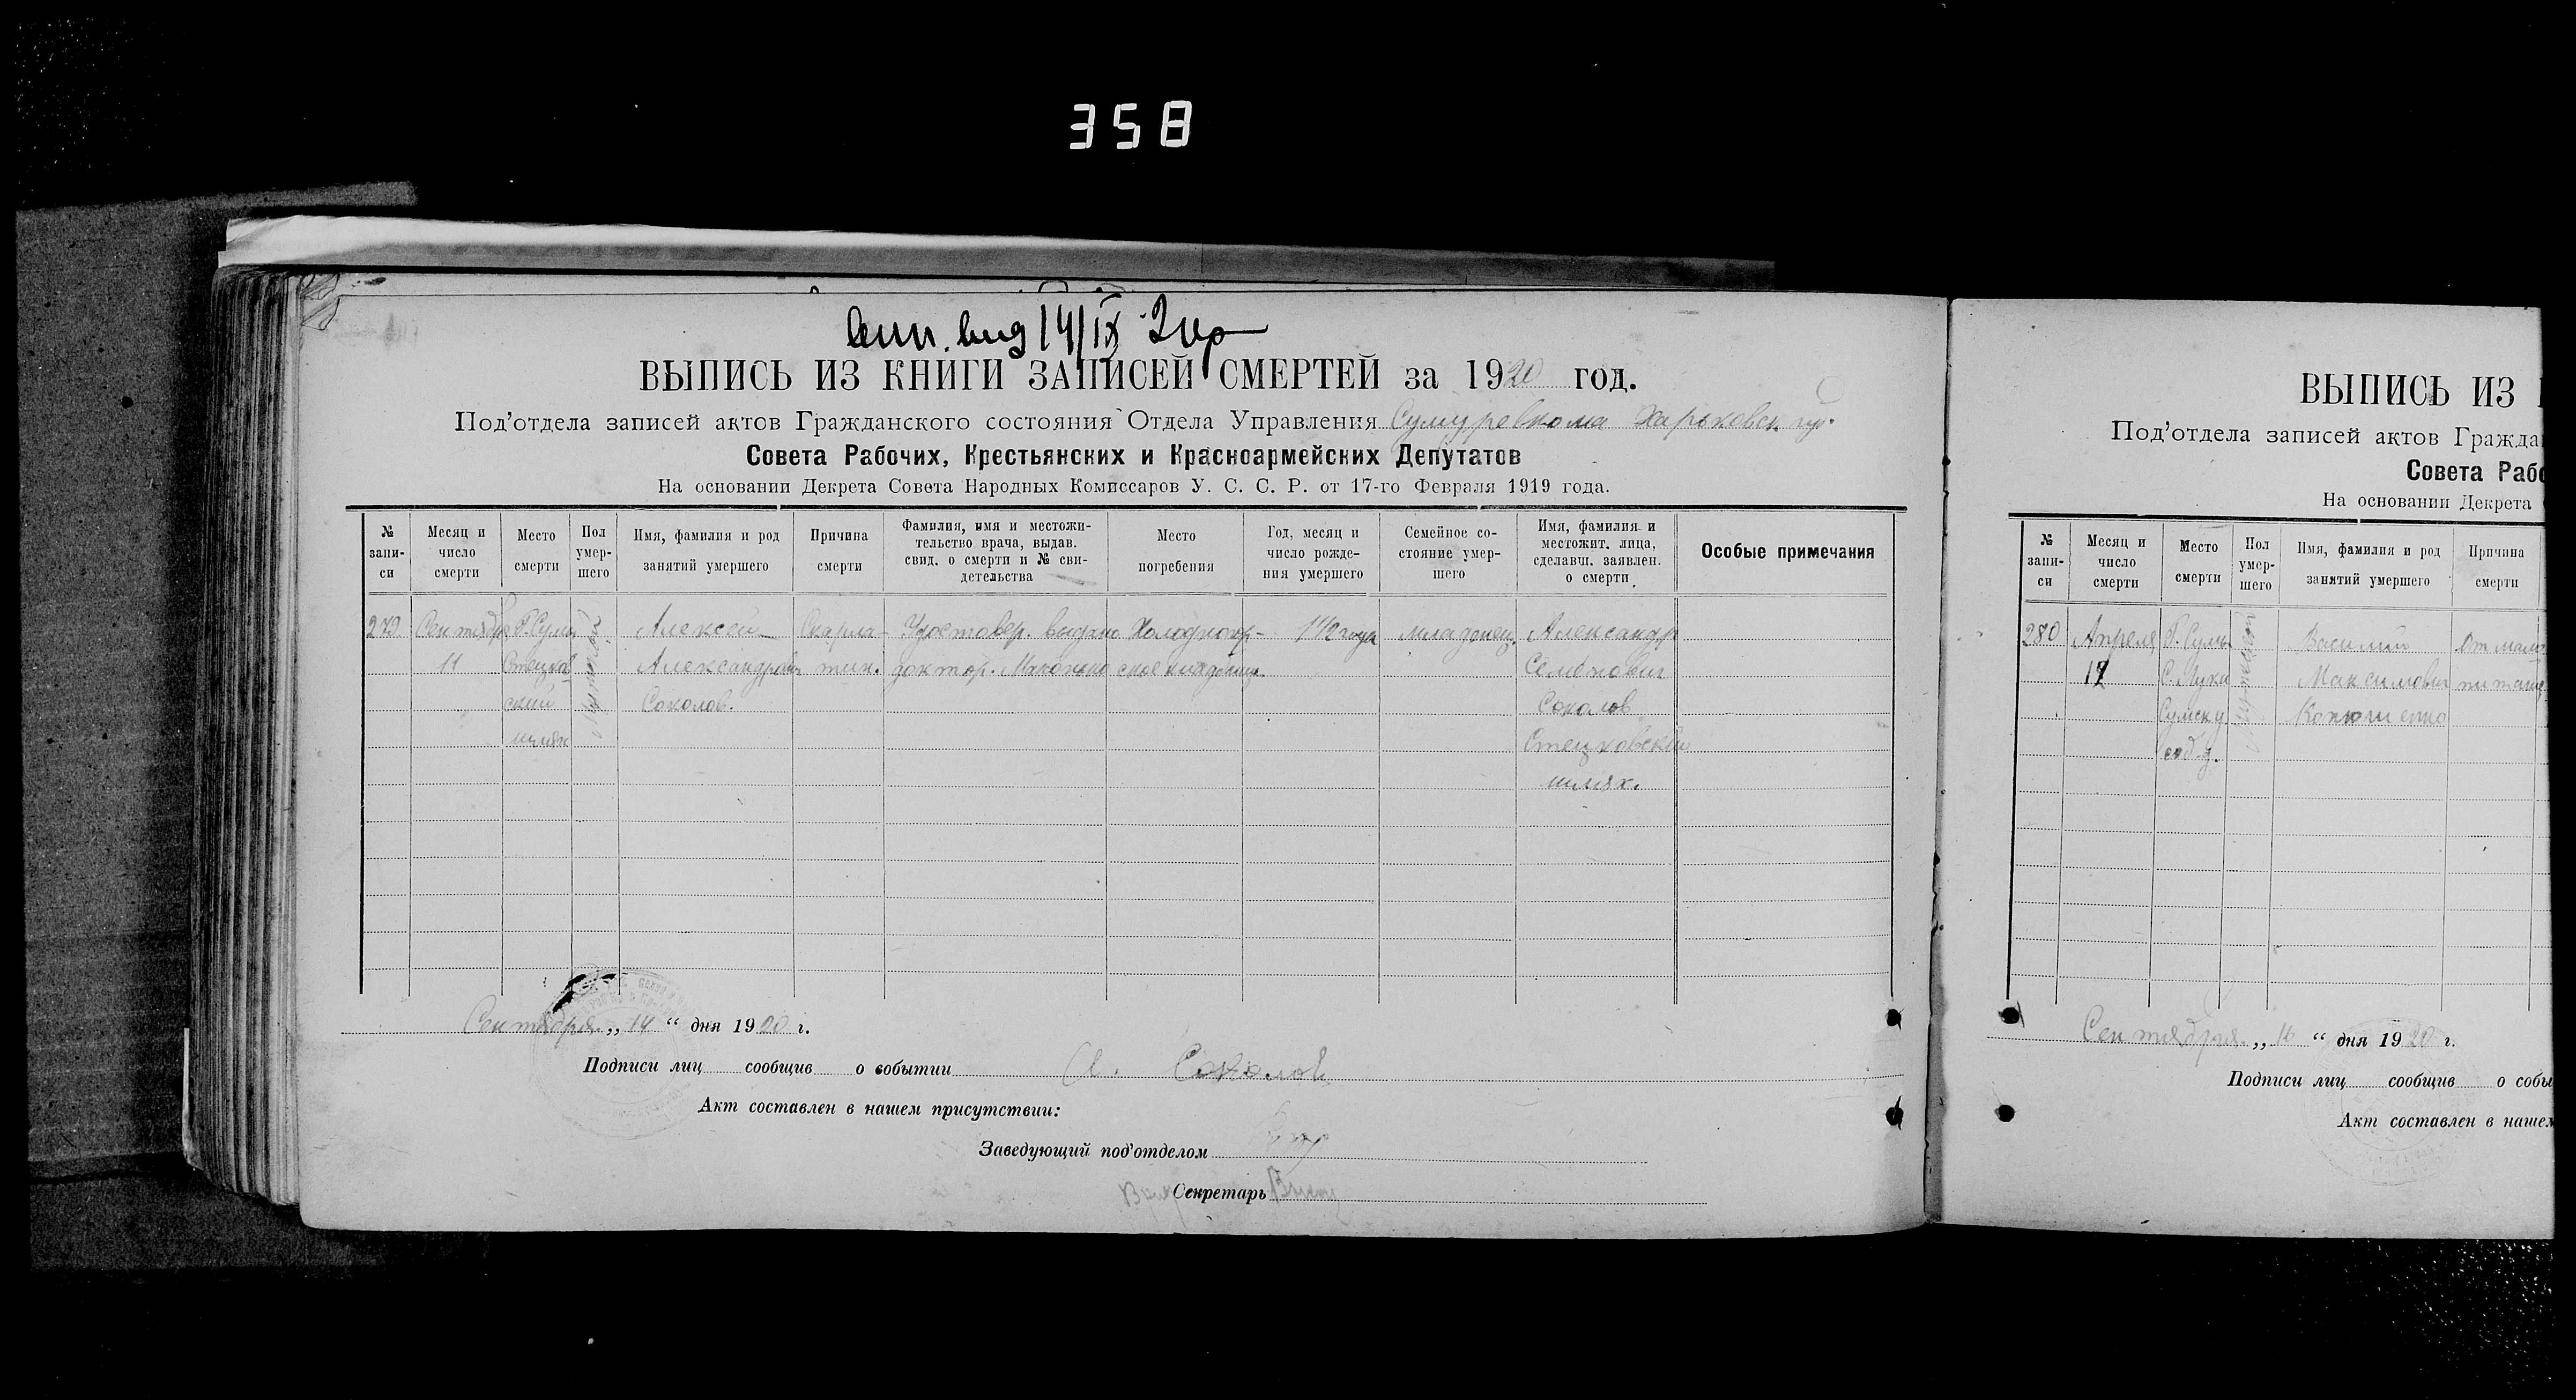 358
14/IX
ВЫПИСЬ ИЗ КНИГИ ЗАПИСЕЙ СМЕРТЕЙ за 1920 год.
Под'отдела записей актов Гражданского состояния Отдела Управления Сумуревкома Харьковск. губ.
Совета Рабочих, Крестьянских и Красноармейских Депутатов
На основании Декрета Совета Народных Комиссаров У. С. С. Р. от 17-го Февраля 1919 года.
№ запи-си
Месяц и число смерти
Место смерти
Пол умер-шего
Имя, фамилия и род занятий умершего
Причина смерти
Фамилия, имя и местожи-тельство врача, выдав. свид. о смерти и № сви-детельства
Место погребения
Год, месяц и число рожде-ния умершего
Семейное со-стояние умер-шего
Имя, фамилия и местожит. лица, сделавш. заявлен. о смерти
Особые примечания
279
Сентября
11
Г. Сумы
Стецков
ский
шлях
Мужской
Алексей
Александрович
Соколов.
Скарла-
тин.
Удостовер. выдано
доктор.
1 1/2 года
младенец.
Александр
Семенович
Соколов
Стецковский
шлях.
Сентября „14“ дня 1920 г.
Подписи лиц сообщив о событии А. Соколов
Акт составлен в нашем присутствии:
Заведующий под'отделом
Секретарь
ВЫПИСЬ ИЗ
Под'отдела записей актов Гражда
Совета Раб
На основании Декрета
№ запи-си
Месяц и число смерти
Место смерти
Пол умер-шего
Имя, фамилия и род занятий умершего
Причина смерти
280
Апреля
Г. Сумы
Василий
Максимович
Сентября „16“ дня 1920 г.
Подписи лиц сообщив о собы
Акт составлен в нашем